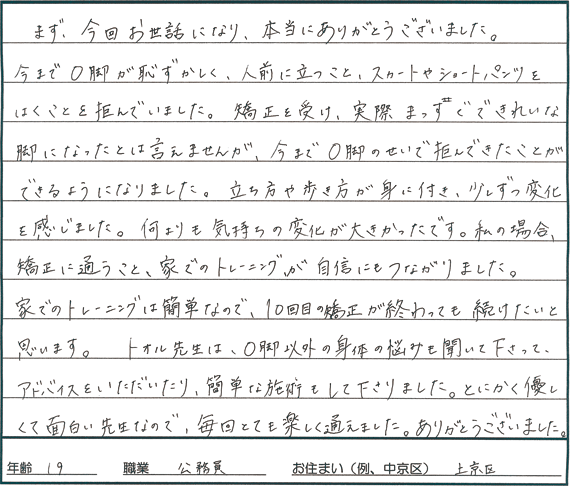 まず、今回お世話になり、本当にありがとうございました。
今までO脚が恥ずかしく、人前に立つこと、スカートやショートパンツを
はくことを拒んでいました。矯正を受け、実際まっすぐできれいな
脚になったとは言えませんが、今までO脚のせいで拒んできたことが
できるようになりました。立ち方や歩き方が身に付き、少しずつ変化
を感じました。何よりも気持ちの変化が大きかったです。私の場合、
矯正に通うこと、家でのトレーニングが自信にもつながりました。
家でのトレーニングは簡単なので、10回目の矯正が終わっても続けたいと
思います。 トオル先生は、O脚以外の身体の悩みも聞いて下さって、
アドバイスをいただいたり、簡単な施術もして下さりました。とにかく優し
くて面白い先生なので、毎回とても楽しく通えました。ありがとうございました。
年齢 19 職業 公務員 お住まい（例、中京区） 上京区